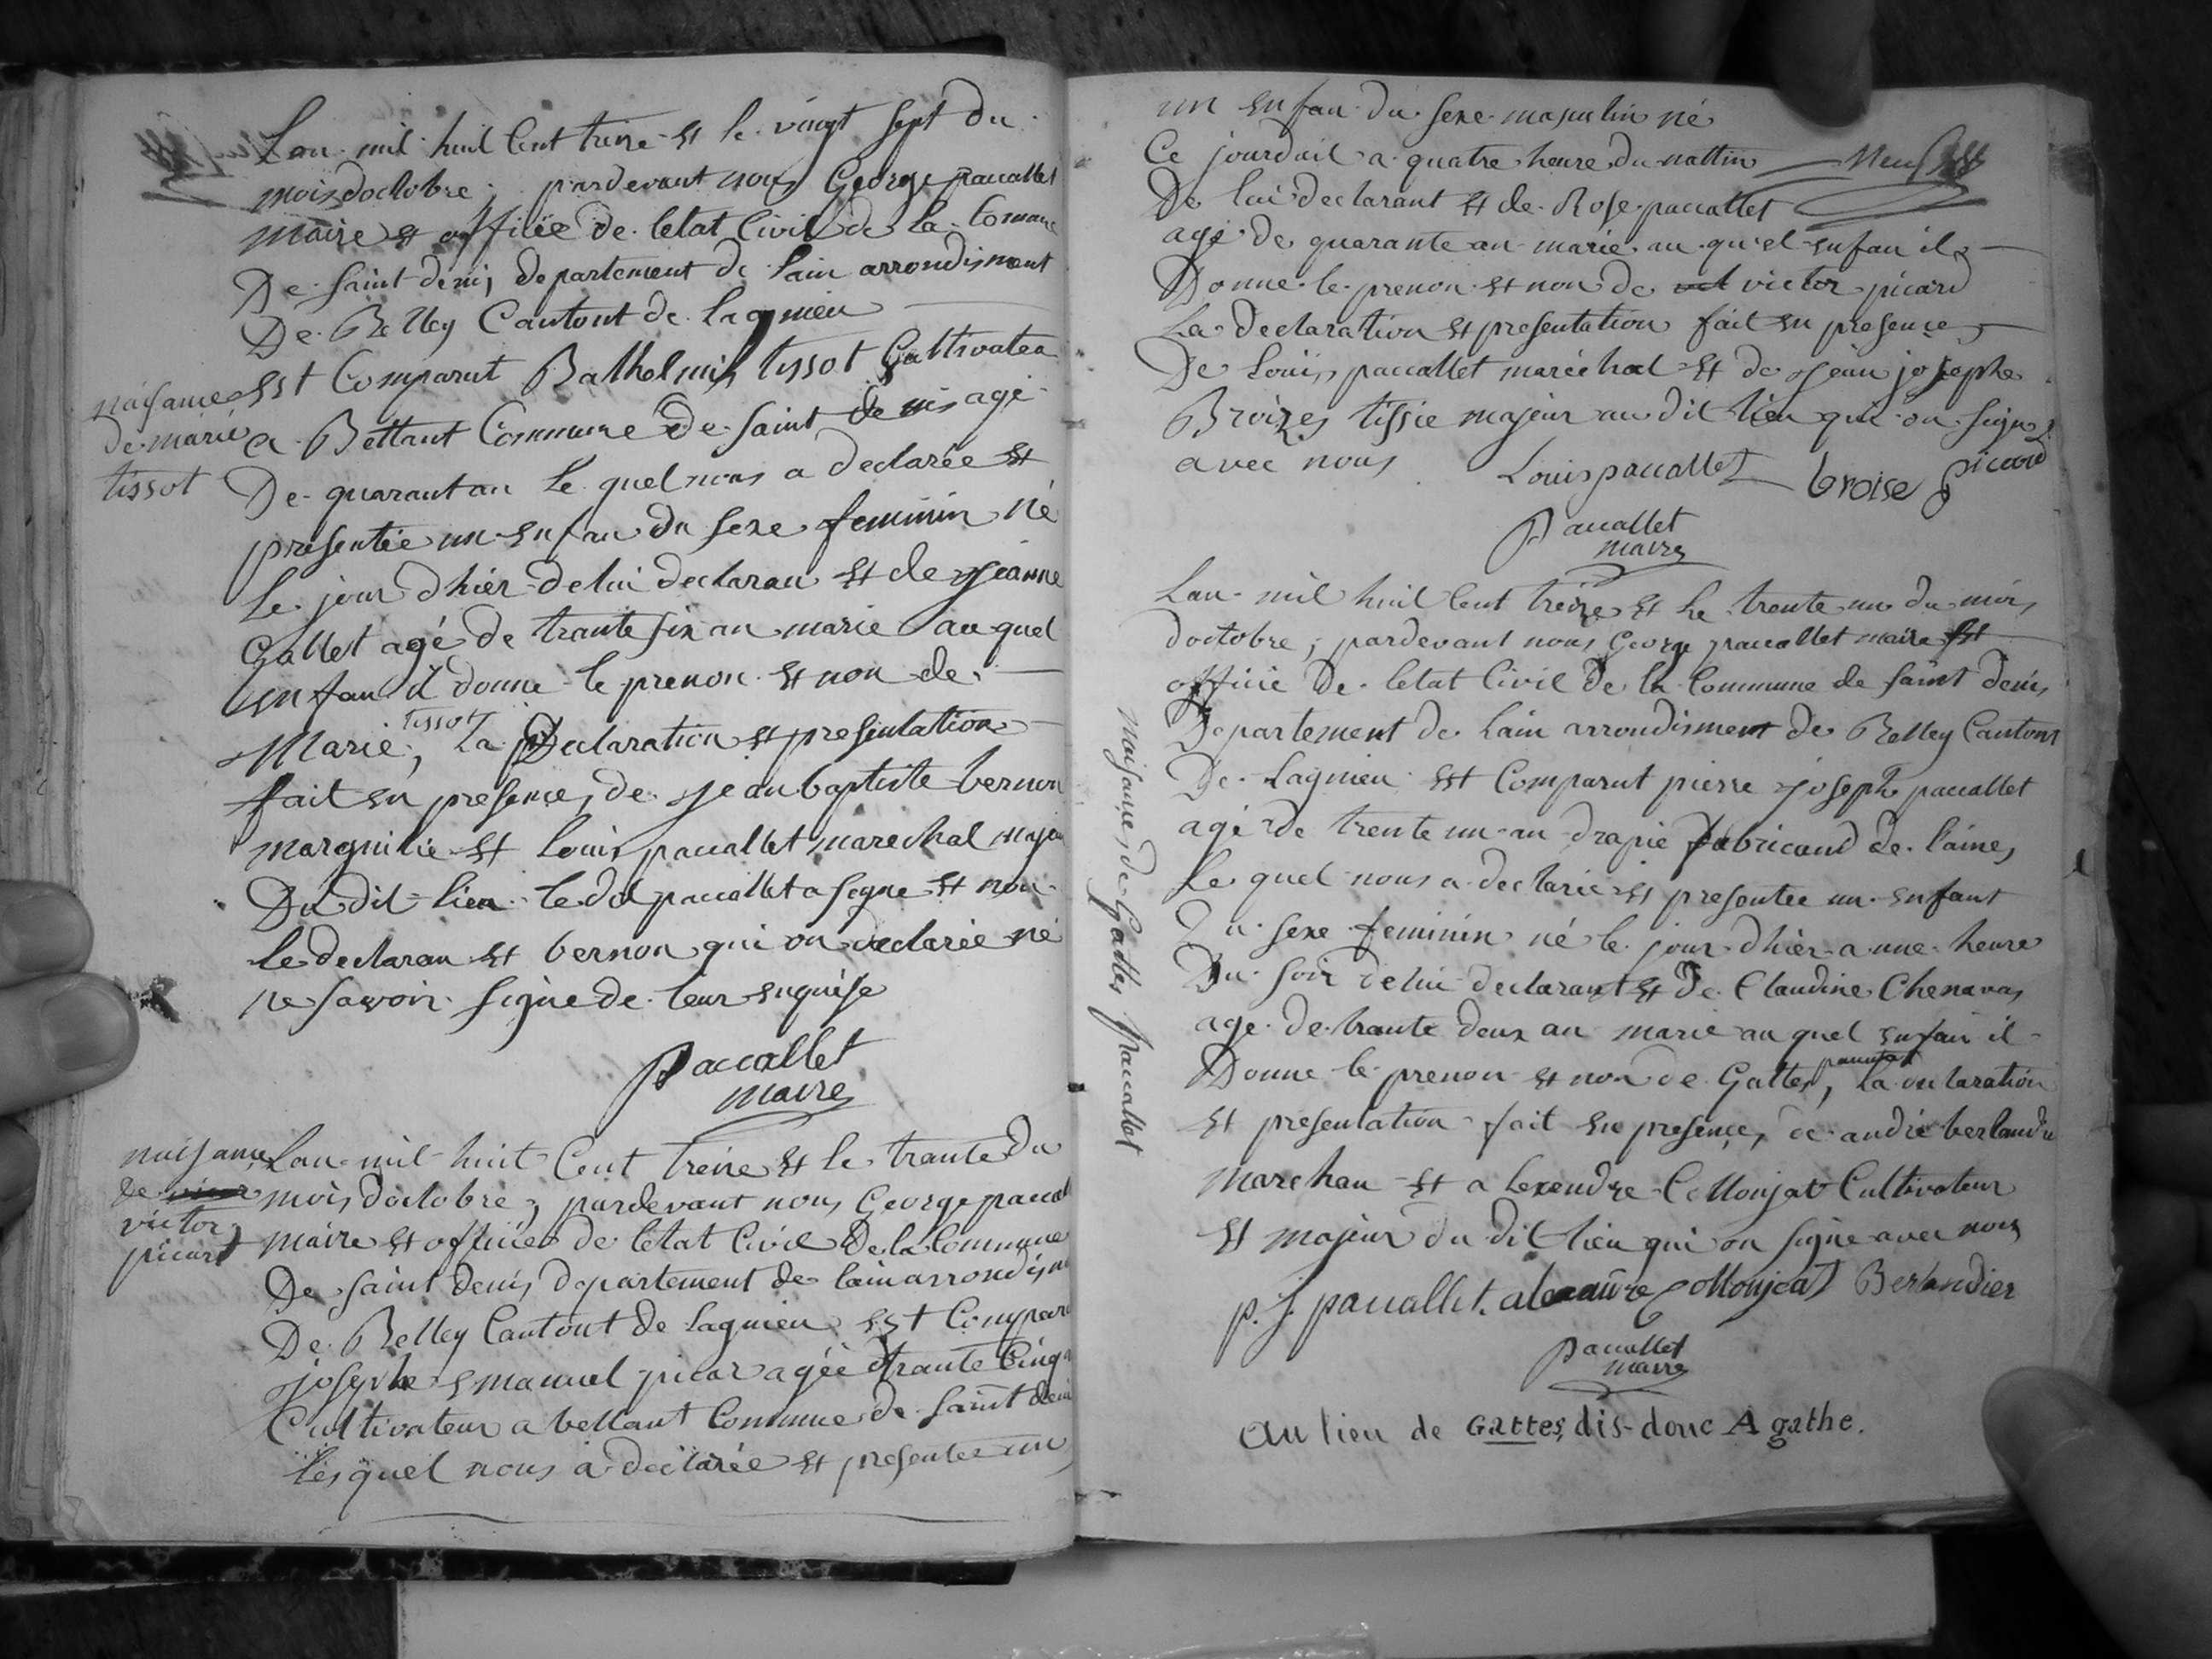 Lan mil huil Cent treize et le vingt sept du
mois doctobre, pardevant nous George paccallet
maire et officiée de letat Civil de la Comune
De saint denis departement de lain arrondisment
De Belley Cantont de lagnieu
naisance de marie tissot
est Comparut Bathelmis tissot Cultivateu
a Bettant Commune de saint denis agé
De quarant an le quel nous a declarée et
presentée un enfan du sexe feminin né
le jour dhiér de lui declaran et de jeanne
Gallet agé de trante six an marié au quel
enfan il donne le prenon et non de
Marie, tissot la Declaration et presentation
fait en presence, de jean baptiste bernon
marguilié et louis paccallet marechal majeu
Du dit lieu le dit paccallet a signe et non
le declaran et bernon qui on declarée né
ne savoir signe de leur enquise
Paccallet
maire
naisance de victor picart
Lan mil huit Cent treize et le trante du
mois doctobre, pardevant nous George paccal
maire et officiée de letat Civil De la Commune
De saint denis departement de lain arrondism
De Belley Cantont de lagnieu est Compar
josephe emanuel picar agée trante Cinq a
Cultivateur a bettant Commune de saint deni
les quel nous à déclarée et presentée un
un enfan du sexe masculin né
Ce jourduil a quatre heure du mattin
De lui declarant et de Rose paccallet
agé de quarante an marié au quel enfan il
Donne le prenon et non de victor picard
La declaration et presentation fait en presence
De louis paccallet maréchal et de jean josephe
Broizes tissie majeur au dit lieu qui on signe
avec nous
Louis paccallet broise picard
Paccallet
maire
naisance de Gattes Paccallet
Lan mil huil Cent treize et le trente un du mois
doctobre, pardevant nous George paccallet maire et
officié De letat Civil De la Commune de saint denis
Departement de lain arrondisment de Belley Cantont
De Lagnieu est Comparut pierre joseph paccallet
agé de trente un an drapié fabricand de laines
Le quel nous a declarié et presentée un enfant
Du sexe feminin né le jour dhiér a une heure
Du soir de lui declarant et De Claudine Chenavas
age de trante deux an marié au quel enfan il
Donne le prenon et non de Gattes, paccallet la declaration
et presentation fait en presence, de andré berlandie
marchan et a lexendre Collonjat Cultivateur
et majeur du dit lieu qui on signe avec nous
p. j. paccallet. alexandre Collonjeat Berlandier
paccallet
maire
au lieu de Gattes, dis-donc Agathe.